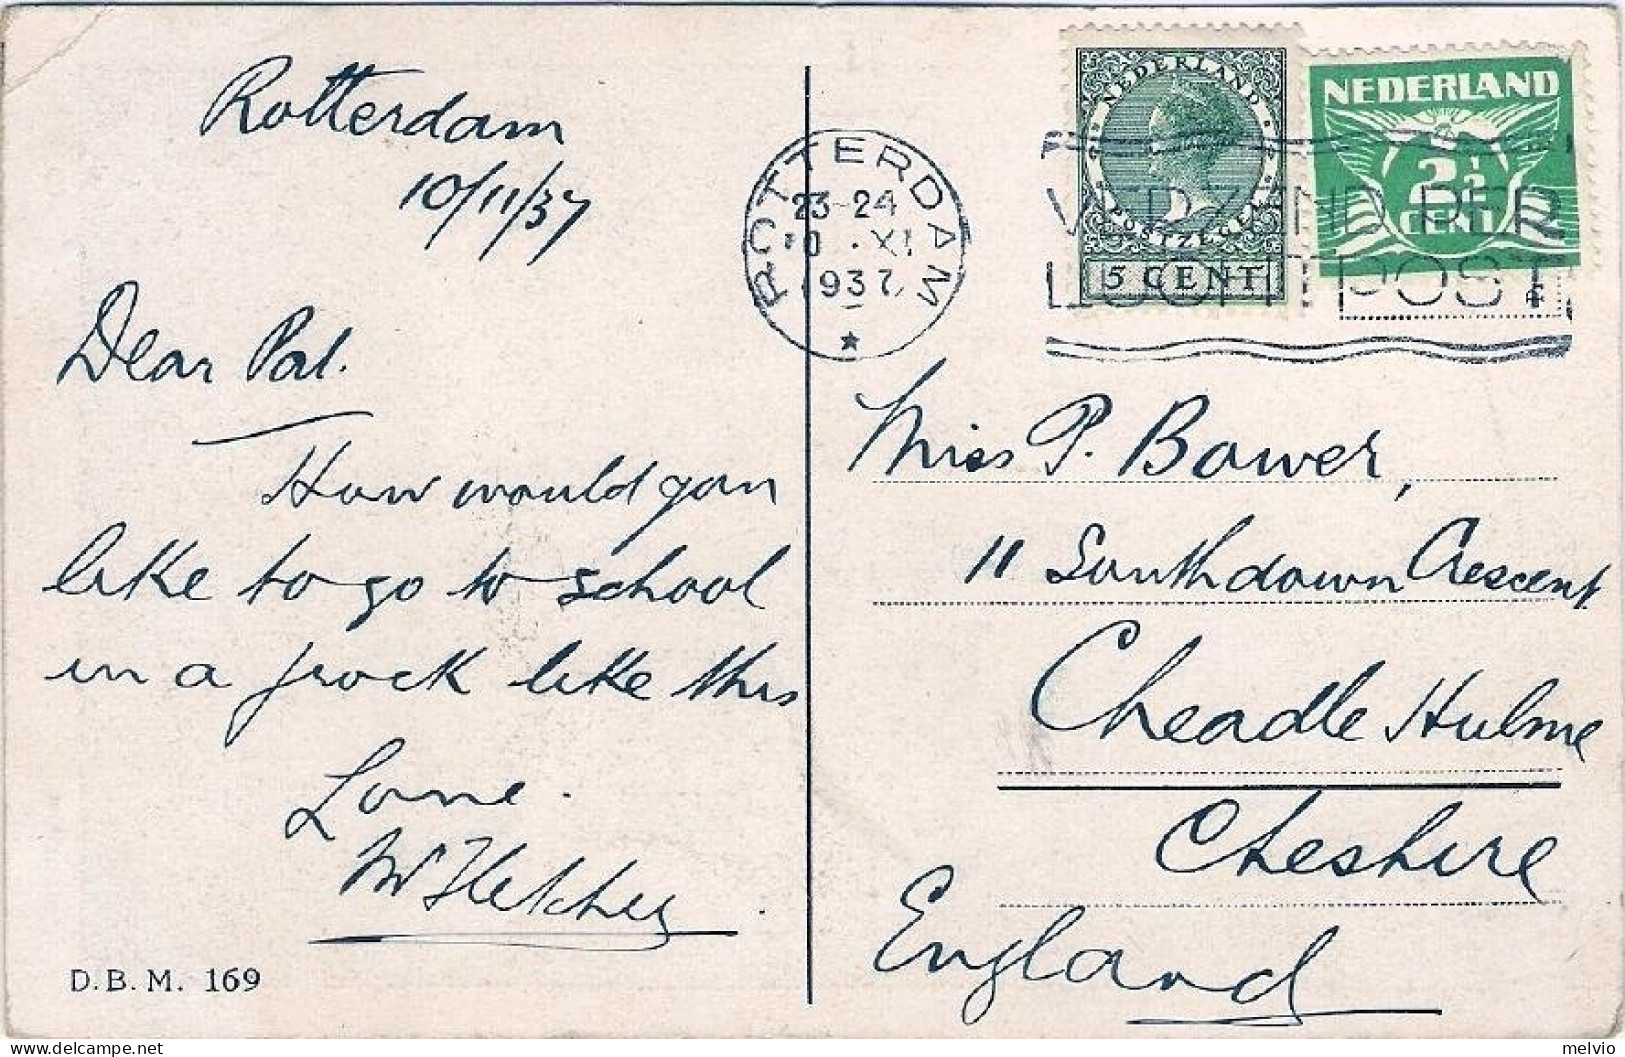 Rotterdam
10/11/37
Dear Pat.
How would you
like to go to school
in a frock like this
Love.
Mr Fletcher.
D.B.M. 169
ROTTERDAM
23-24
10 . XI
1937
VERZEND PER
LUCHTPOST
NEDERLAND
POSTZEGEL
5 CENT
NEDERLAND
2½
CENT
Miss P. Bower,
11 Southdown Crescent.
Cheadle Hulme
Cheshire
England
melvio